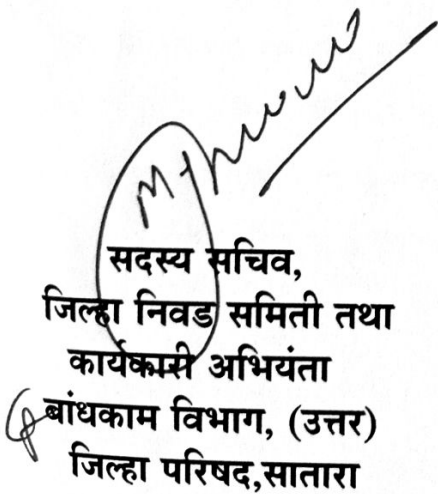 सदस्य सचिव,
जिल्हा निवड समिती तथा
कार्यकारी अभियंता
बांधकाम विभाग, (उत्तर)
जिल्हा परिषद,सातारा